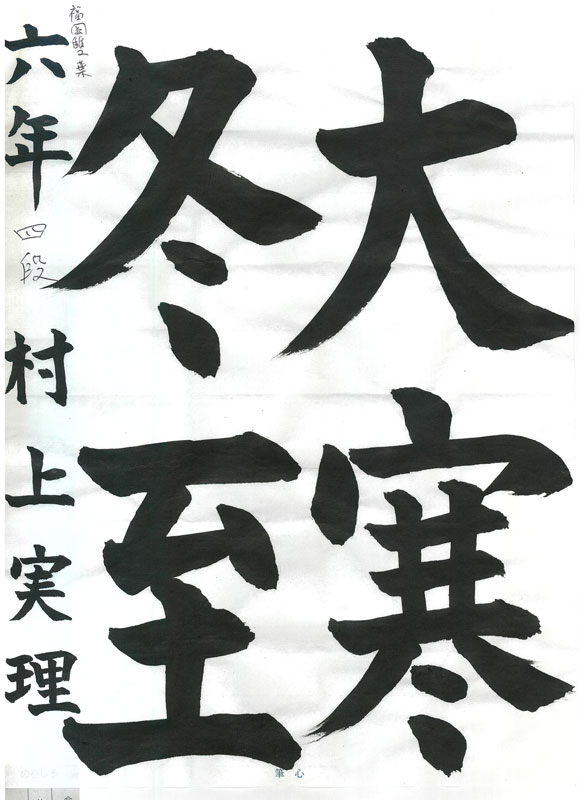 大寒
冬至
福岡雙葉
六年 四段 村上実理
筆心